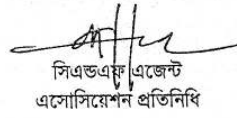 সিএন্ডএফ এজেন্ট
এসোসিয়েশন প্রতিনিধি